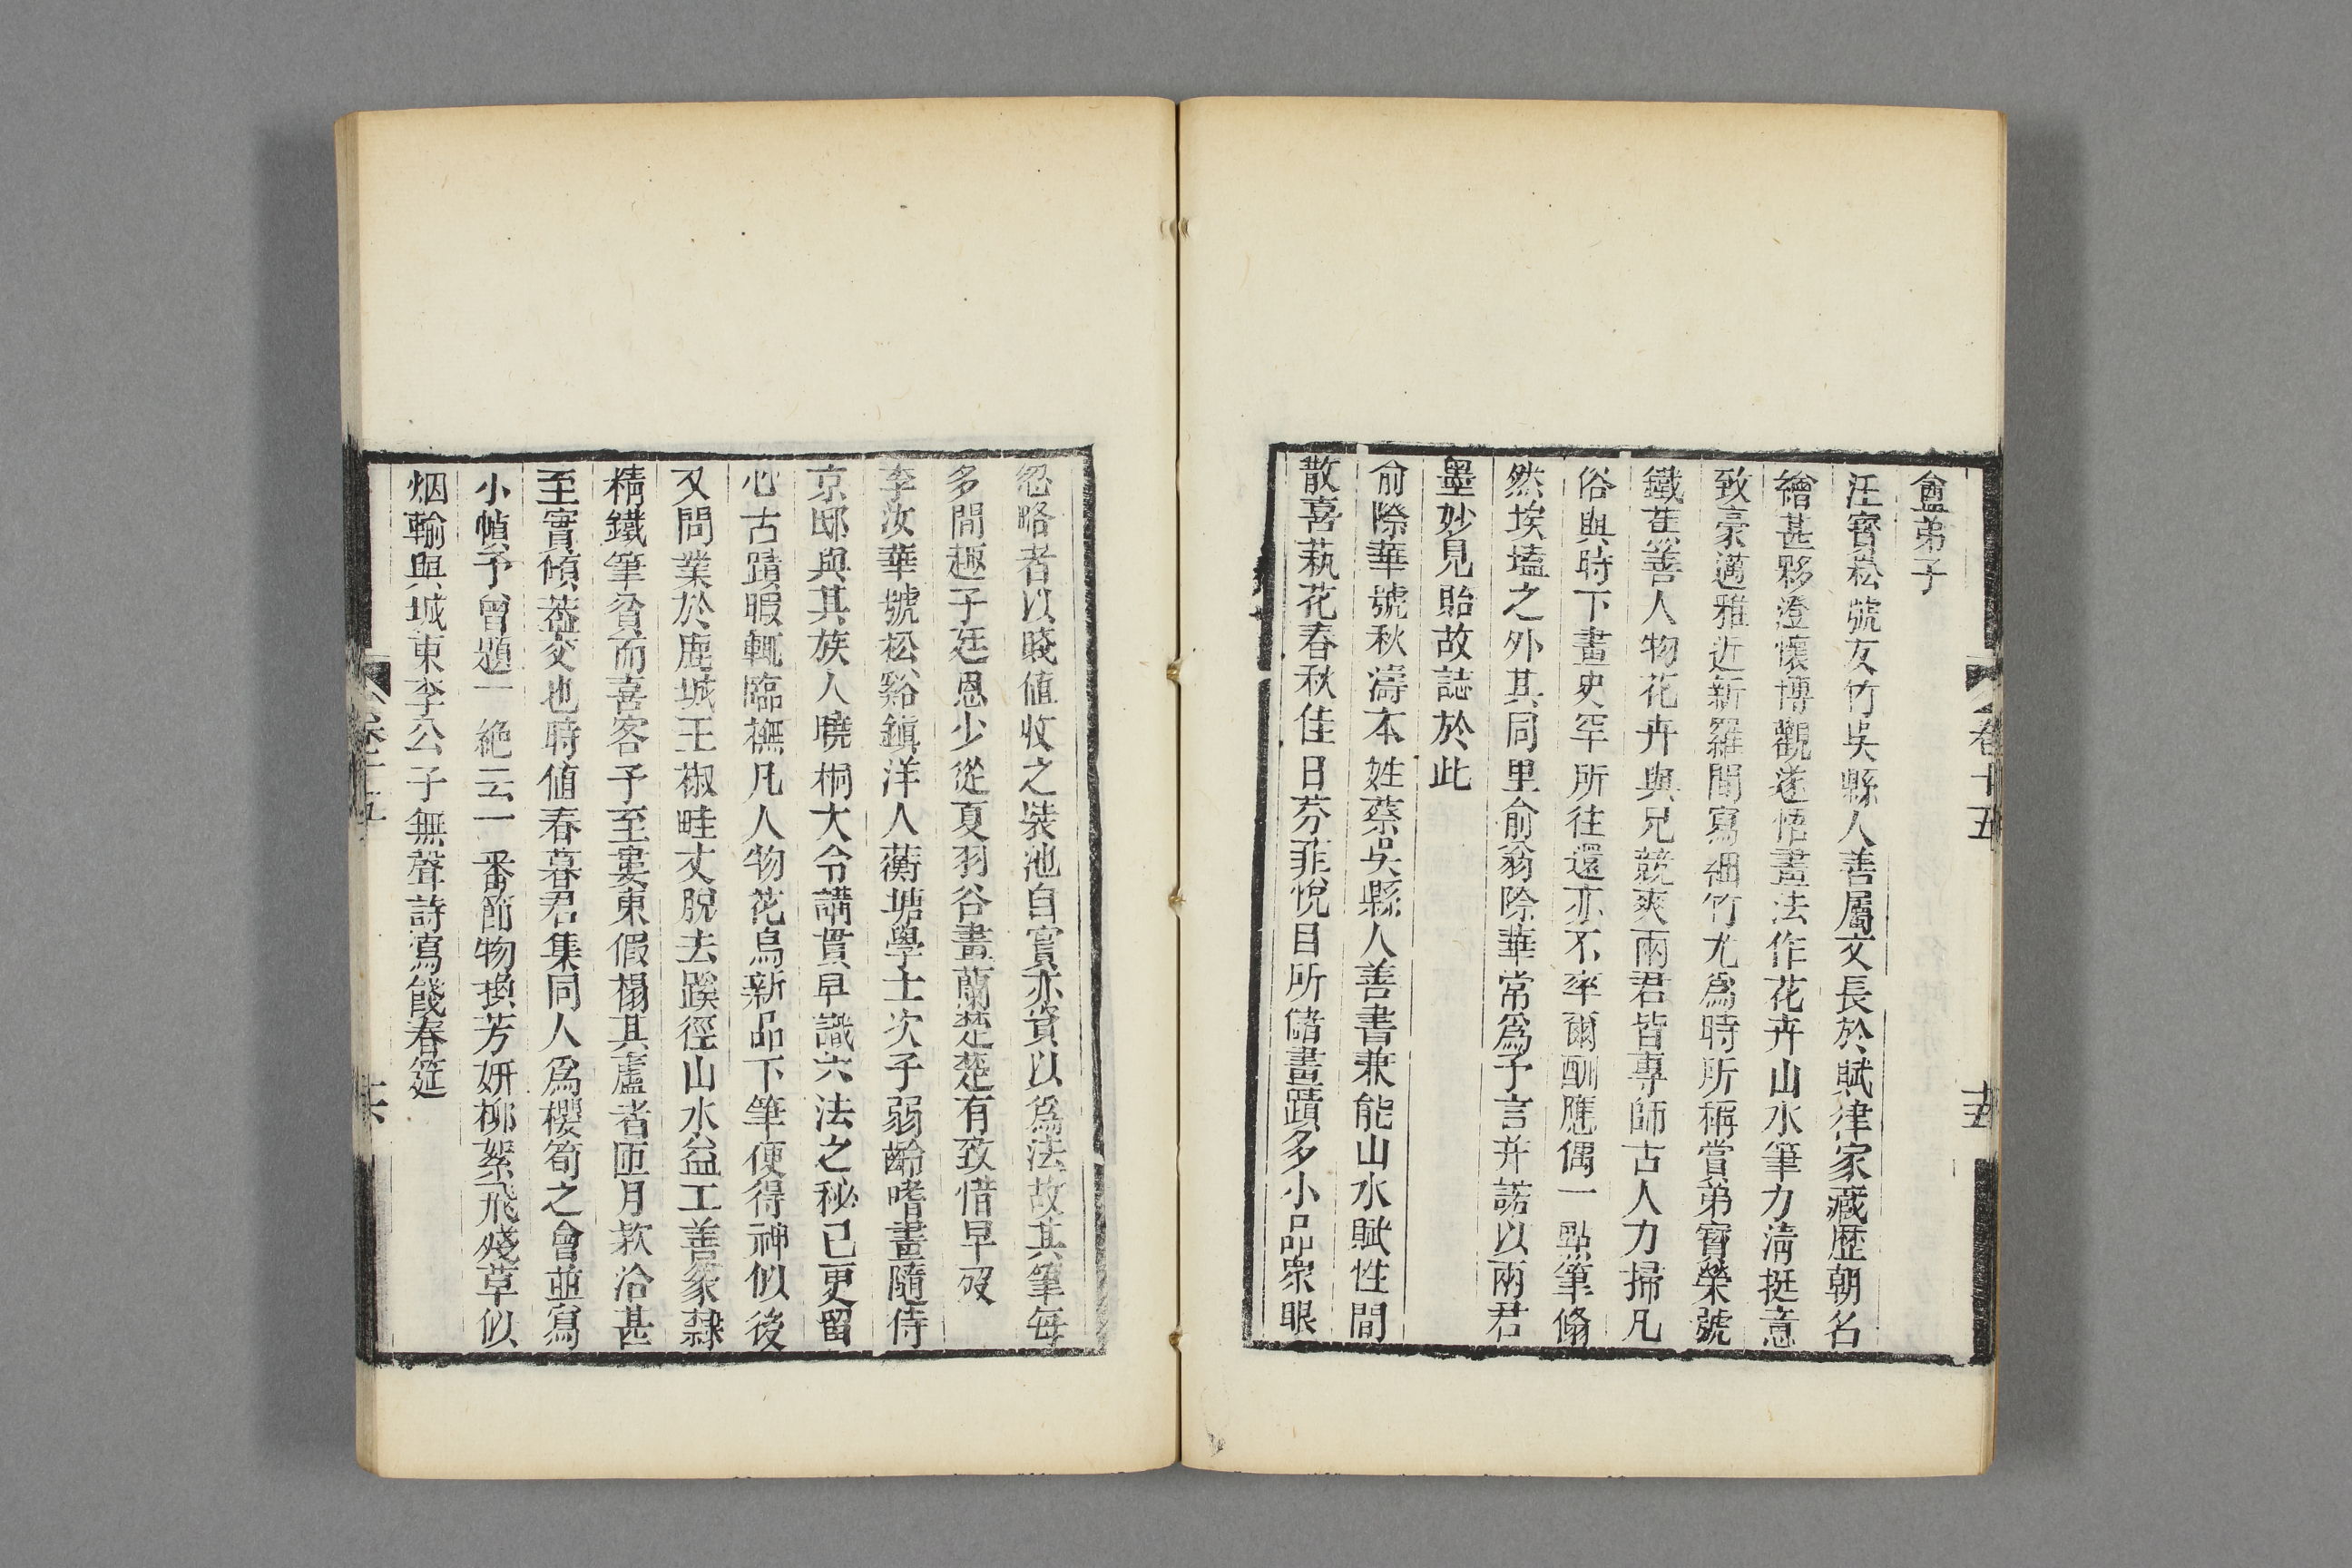 盦弟子
汪寶崧號友竹吳縣人善屬文長於賦律家藏歷朝名
繪甚夥澄懷博觀遂悟畫法作花卉山水筆力淸挺意
致豪邁雅近新羅閒寫細竹尤爲時所稱賞弟寶榮號
鐵蕉善人物花卉與兄競爽兩君皆專師古人力掃凡
俗與時下畫史罕所往還亦不率爾酬應偶一點筆翛
然埃壒之外其同里俞翁際華常爲予言幷諾以兩君
墨妙見貽故誌於此
俞際華號秋濤本姓蔡吳縣人善書兼能山水賦性閒
散喜蓺花春秋佳日芬菲悅目所儲畫蹟多小品衆眼
卷十五
十五
忽略者以賤值收之裝池自賞亦資以爲法故其筆每
多閒趣子廷恩少從夏羽谷畫蘭楚楚有致惜早歿
李汝華號松谿鎮洋人蘅塘學士次子弱齡嗜畫隨侍
京邸與其族人曉桐大令講貫早識六法之秘已更留
心古蹟暇輒臨橅凡人物花鳥新品下筆便得神似後
又問業於鹿城王椒畦丈脫去蹊徑山水益工善篆隸
精鐵筆貧而喜客予至婁東假榻其廬者匝月欵洽甚
至實傾葢交也時值春暮君集同人爲櫻筍之會並寫
小幀予曾題一絶云一番節物換芳妍柳絮飛殘草似
烟輸與城東李公子無聲詩寫餞春筵
卷十五
十六